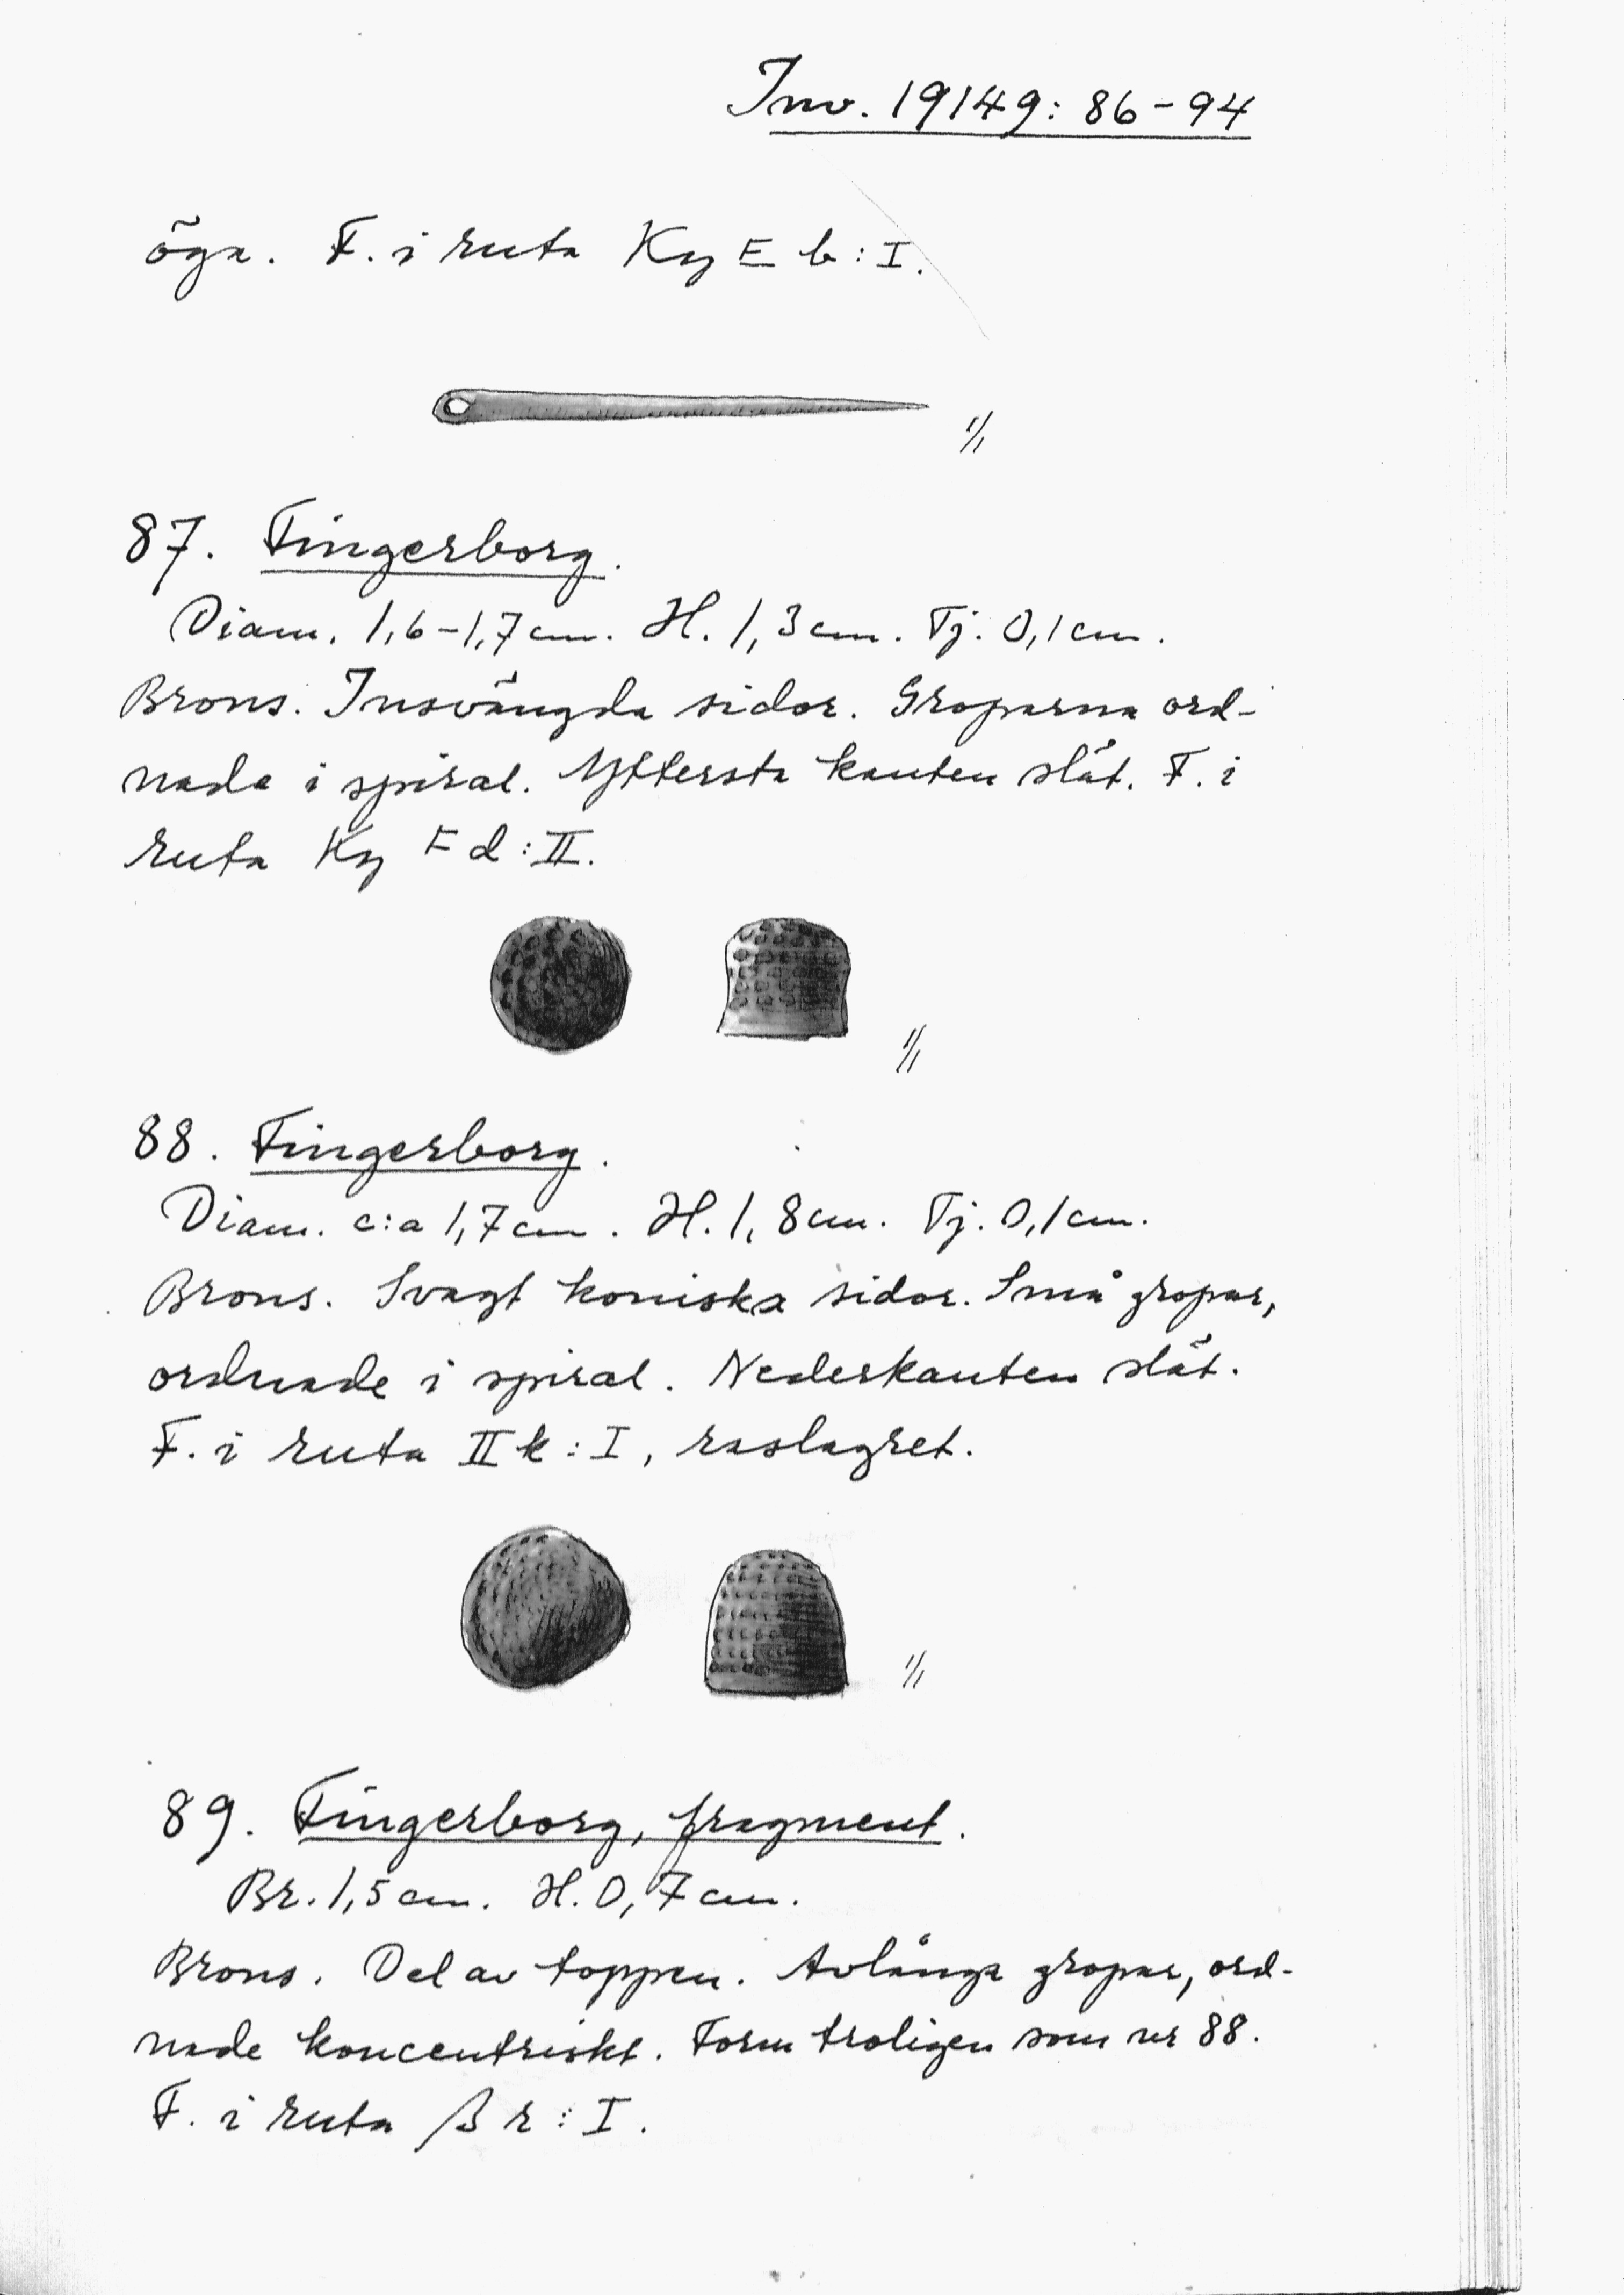 Inv. 19149: 86-94
öga. F. i ruta Ky E b:I.
1/1
87. Fingerborg.
Diam. 1,6-1,7 cm. H. 1,3 cm. Tj. 0,1 cm.
Brons. Insvängda sidor. Groparna ord-
nade i spiral. Yttersta kanten slät. F. i
ruta Ky E d:II.
1/1
88. Fingerborg.
Diam. c:a 1,7 cm. H. 1,8 cm. Tj. 0,1 cm.
Brons. Svagt koniska sidor. Små gropar,
ordnade i spiral. Nederkanten slät.
F. i ruta II k:I, raslagret.
1/1
89. Fingerborg, fragment.
Br. 1,5 cm. H. 0,7 cm.
Brons. Del av toppen. Avlånga gropar, ord-
nade koncentriskt. Form troligen som nr 88.
F. i ruta β r:I.